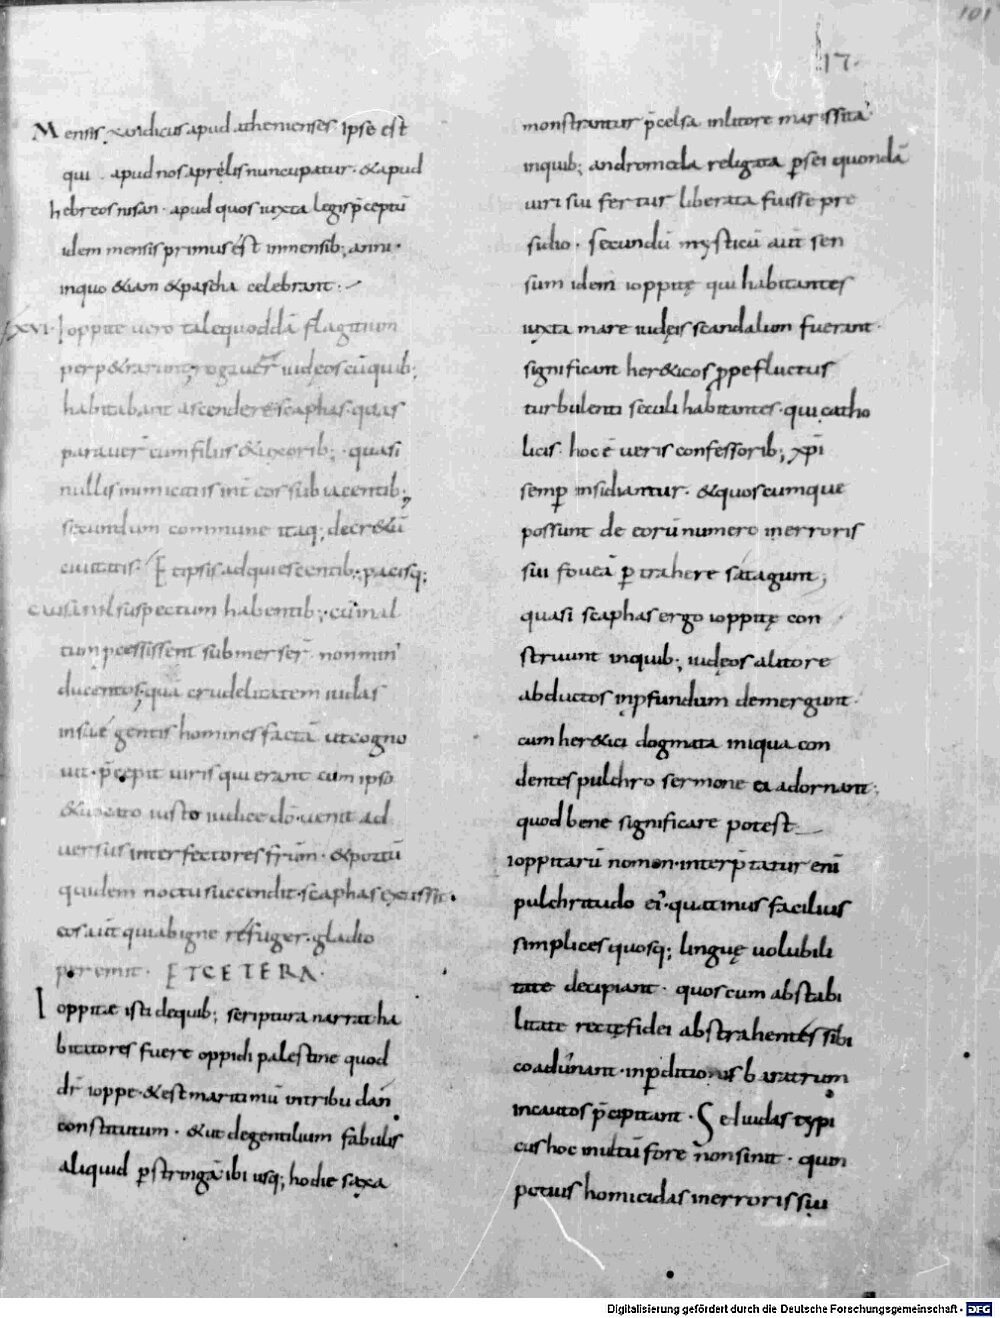 101
17.
Mensis xandicus apud athenienses ipse est
qui apud nos aprelis nuncupatur · &apud
hebreos nisan · apud quos iuxta legis p̄ceptū
idem mensis primus ēst inmensib; anni ·
inquo &iam &pascha celebrant ·
LXVI · Ioppite uero tale quoddā flagitium
perp&rarunt; rogauer̄ iudęos cū quib;
habitabant ascendere scaphas quas
parauer̄ cum filiis &uxorib; · quasi
nullis inimicitiis int̄ eos subiacentib;
secundum commune itaq; decr&ū
ciuitatis · Et ipsis adquiescentib; pacisq;
causa nil suspectum habentib; cū inal
tum pcessissent submerser̄ non min'
ducentos; quā crudelitatem iudas
insuę gentis homines factā ut cogno
uit · p̄cepit uiris qui erant cum ipso
&inuocato iusto iudice dō · uenit ad
uersus interfectores frūm · &portū
quidem noctu succendit · scaphas exussit ·
eos aūt qui ab igne refuger̄ · gladio
peremit · ETCETERA ·
Ioppitae isti dequib; scriptura narrat ha
bitatores fuere oppidi palestine quod
dr̄ ioppe · &est maritimū intribu dān
constitutum · &ut degentilium fabulis
aliquid pstringā ibi usq; hodie saxa
monstrantur p̄celsa inlitore maris sita
inquib; andromeda religata persei quondā
uiri sui fertur liberata fuisse pre
sidio · secundū mysticū aūt sen
sum idem ioppitę qui habitantes
iuxta mare iudęis scandalum fuerant ·
significant her&icos ppe fluctus
turbulenti seculi habitantes · qui catho
licis · hoc ē ueris confessorib; xp̄i
semp insidiantur · &quoscumque
possunt de eorū numero inerroris
sui foueā ptrahere satagunt;
quasi scaphas ergo ioppitę con
struunt inquib; iudęos alitore
abductos inpfundum demergunt ·
cum her&ici dogmata iniqua con
dentes pulchro sermone ea adornant;
quod bene significare potest
ioppitarū nomen · interp̄tatur enī
pulchritudo ei · quatinus facilius
simplices quosq; linguę uolubili
tate decipiant · quos cum abstabi
litate rectę fidei abstrahentes sibi
coadunant · inpditionis baratrum
incautos p̄cipitant · Sed iudas typi
cus hoc inultū fore non sinit · quin
potius homicidas inerroris sui
Digitalisierung gefördert durch die Deutsche Forschungsgemeinschaft - DFG